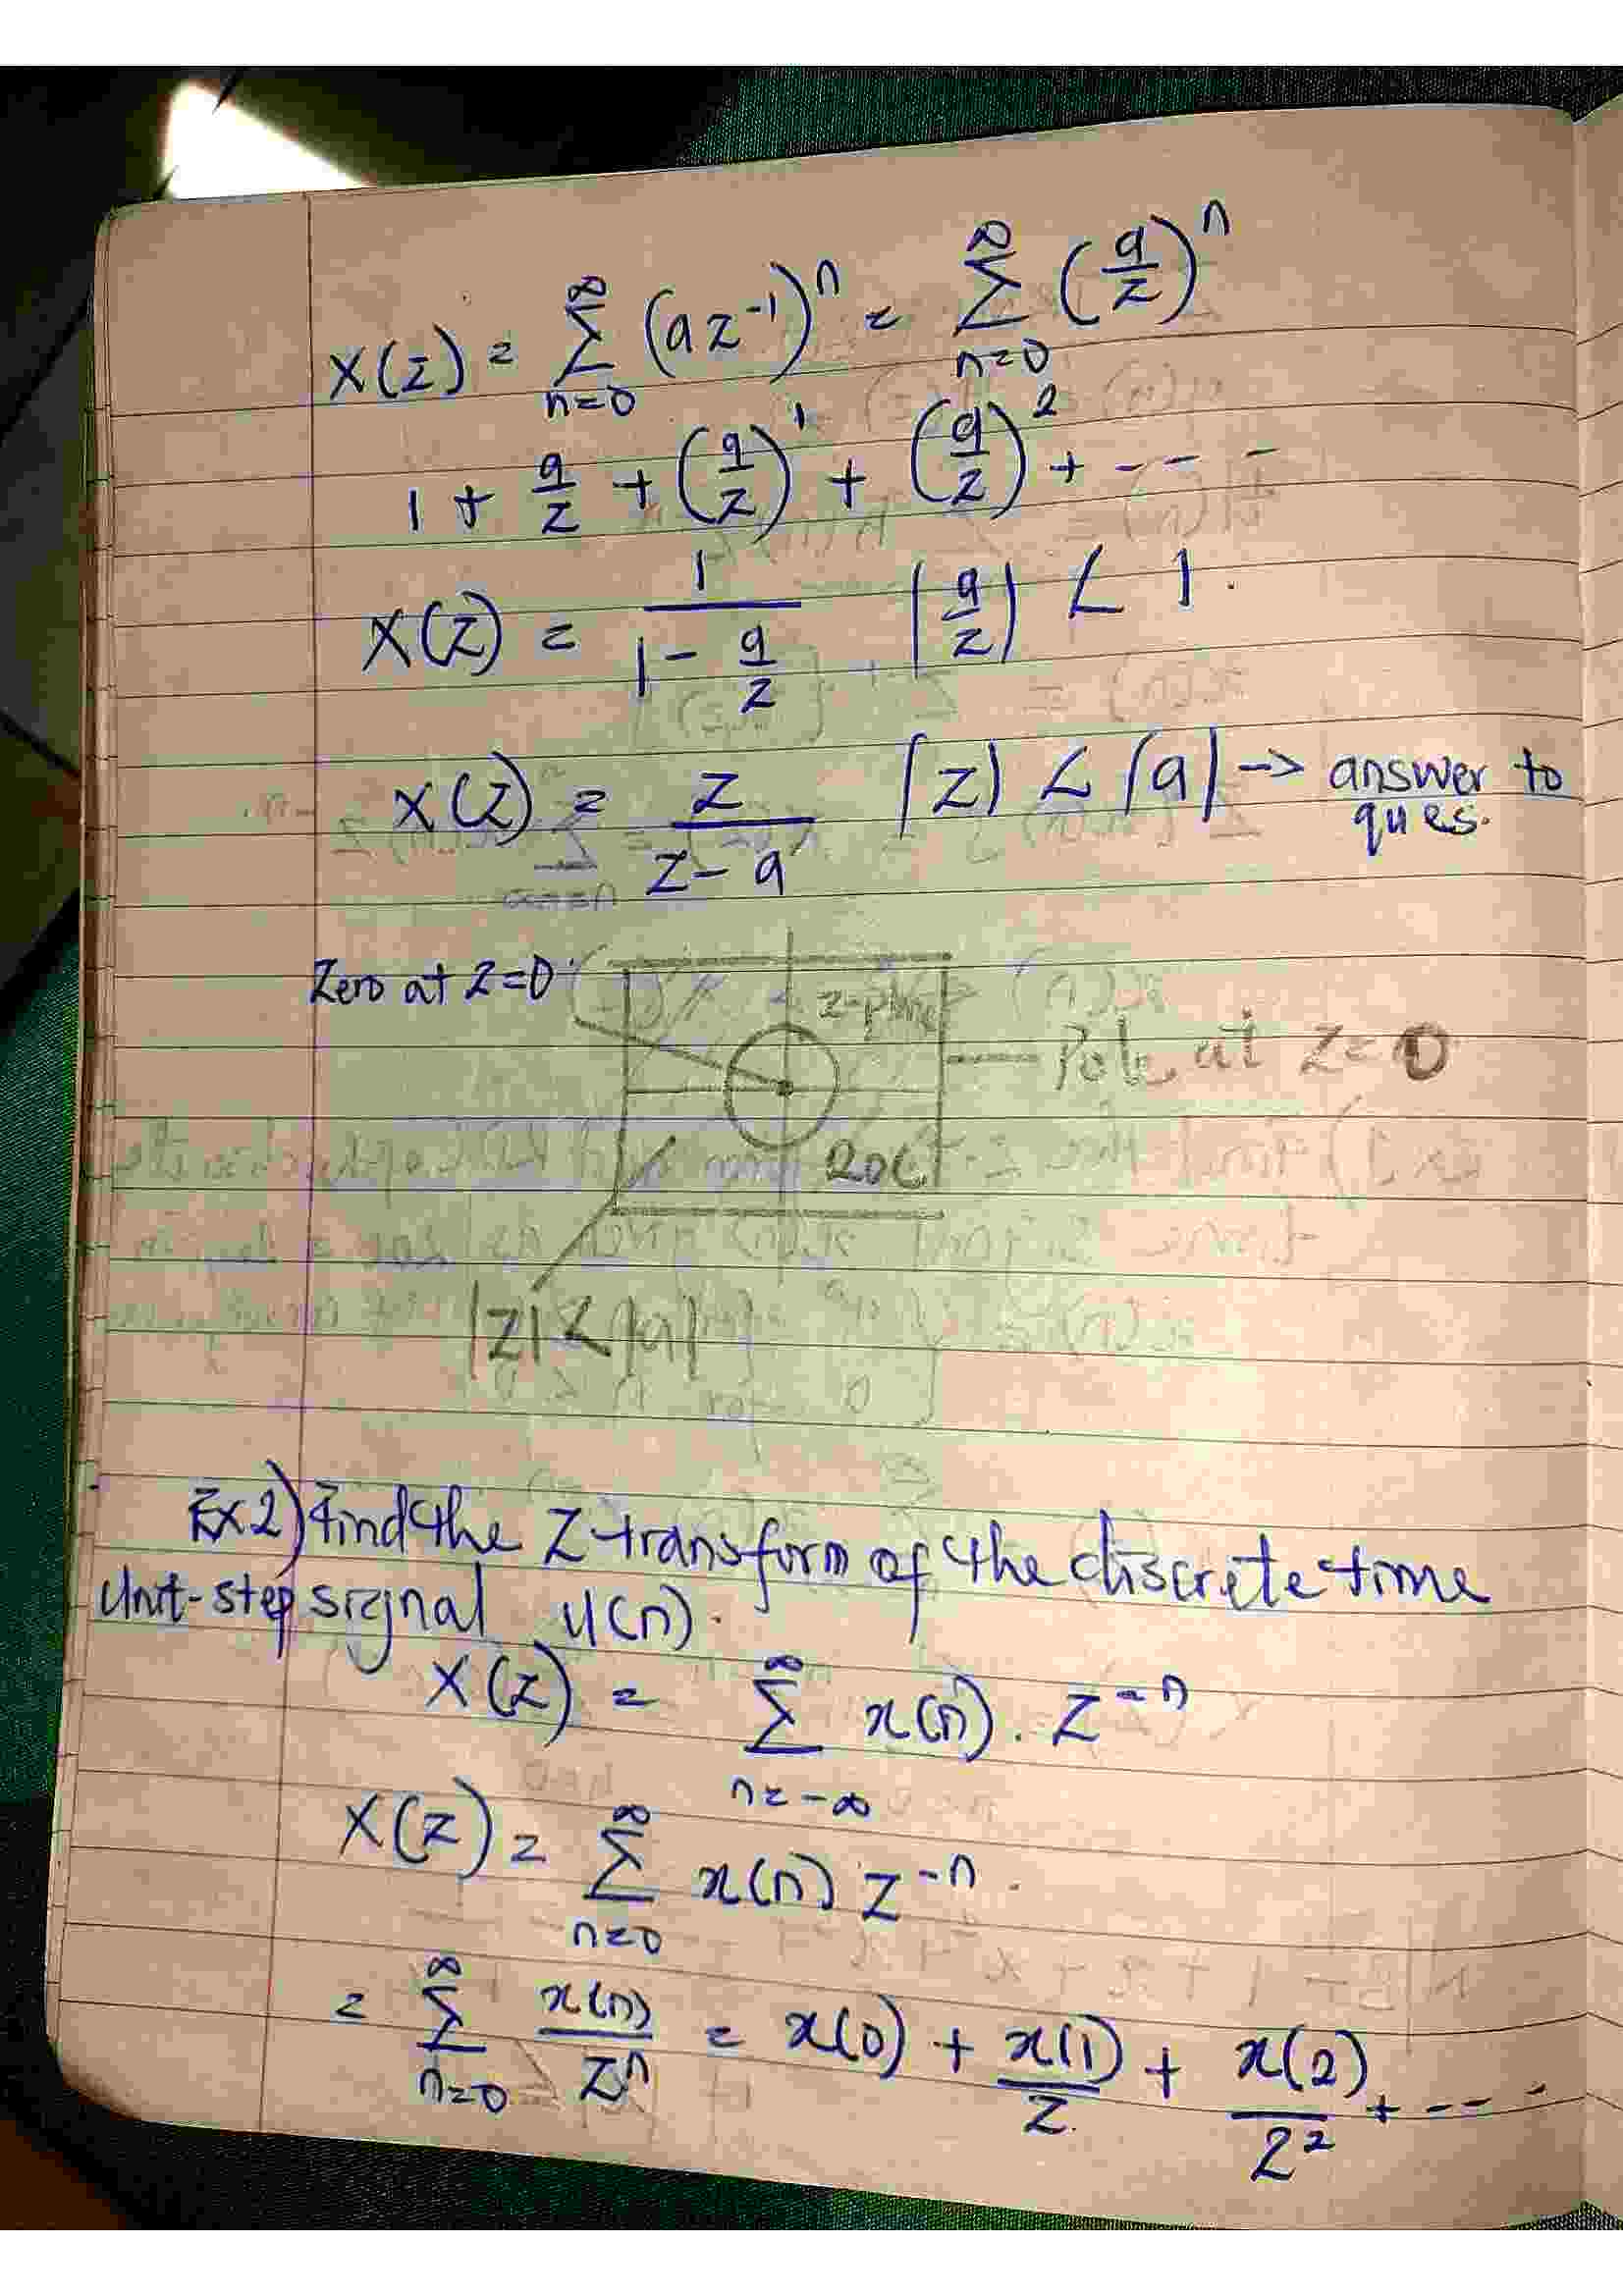 X(z) = ∞Σn=0 (az⁻¹)ⁿ = ∞Σn=0 (a/z)ⁿ
1 + a/z + (a/z)¹ + (a/z)² + ----
X(z) = 1/(1 - a/z) |a/z| < 1.
X(z) = z/(z - a) |z| < |a| -> answer to
ques.
Zero at z=0
z-plane
Pole at z=0
ROC
|z| < |a|
Ex 2) Find the Z-transform of the discrete time
Unit-step signal u(n).
X(z) = ∞Σn=-∞ x(n). z⁻ⁿ
X(z) = ∞Σn=0 x(n) z⁻ⁿ.
= ∞Σn=0 x(n)/zⁿ = x(0) + x(1)/z + x(2)/z² + ----